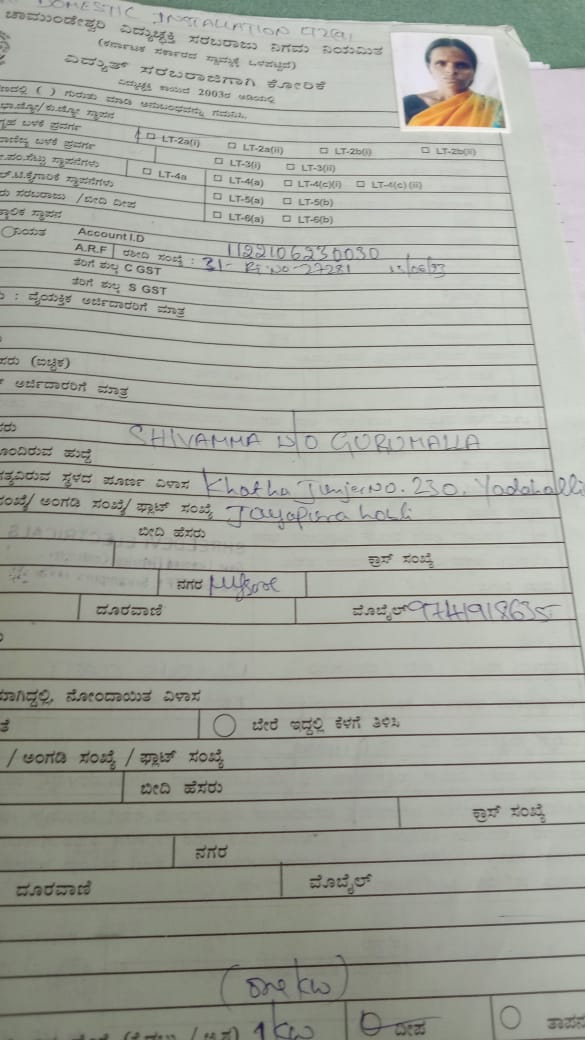 DOMESTIC INSTALLATION
ಚಾಮುಂಡೇಶ್ವರಿ ವಿದ್ಯುಚ್ಛಕ್ತಿ ಸರಬರಾಜು ನಿಗಮ ನಿಯಮಿತ
(ಕರ್ನಾಟಕ ಸರ್ಕಾರದ ಸ್ವಾಮ್ಯಕ್ಕೆ ಒಳಪಟ್ಟಿದೆ)
ವಿದ್ಯುತ್ ಸರಬರಾಜಿಗಾಗಿ ಕೋರಿಕೆ
ವಿದ್ಯುಚ್ಛಕ್ತಿ ಕಾಯಿದೆ 2003ರ ಅಡಿಯಲ್ಲಿ
( ) ಗುರುತು ಮಾಡಿ ಅನುಬಂಧವನ್ನು ಗಮನಿಸಿ.
ಬಳಕೆ ಪ್ರವರ್ಗ LT-2a(i) LT-2a(ii) LT-2b(i) LT-2b(ii)
ಬಳಕೆ ಪ್ರವರ್ಗ LT-3(i) LT-3(ii)
ಸ್ಥಾಪನೆಗಳು LT-4a LT-4(a) LT-4(c)(i) LT-4(c)(ii)
ಸ್ಥಾಪನೆಗಳು LT-5(a) LT-5(b)
ಸರಬರಾಜು / ಬೀದಿ ದೀಪ LT-6(a) LT-6(b)
ಸ್ಥಾಪನ
Account I.D 1122106230030
A.R.F ರಶೀದಿ ಸಂಖ್ಯೆ : 31- R.No-27281
ತೆರಿಗೆ ಶುಲ್ಕ C GST
ತೆರಿಗೆ ಶುಲ್ಕ S GST
: ವೈಯಕ್ತಿಕ ಅರ್ಜಿದಾರರಿಗೆ ಮಾತ್ರ
(ಐಚ್ಛಿಕ)
ಅರ್ಜಿದಾರರಿಗೆ ಮಾತ್ರ
SHIVAMMA D/O GURUMALLA
ಹುದ್ದೆ
ಸ್ಥಳದ ಪೂರ್ಣ ವಿಳಾಸ Khatha Junjer NO. 230, Yadahalli
ಸಂಖ್ಯೆ/ ಅಂಗಡಿ ಸಂಖ್ಯೆ/ ಫ್ಲಾಟ್ ಸಂಖ್ಯೆ Jayapura hobli
ಬೀದಿ ಹೆಸರು
ಕ್ರಾಸ್ ಸಂಖ್ಯೆ
ನಗರ Mysore
ದೂರವಾಣಿ ಮೊಬೈಲ್ 9741918635
ನೋಂದಾಯಿತ ವಿಳಾಸ
ಬೇರೆ ಇದ್ದಲ್ಲಿ ಕೆಳಗೆ ತಿಳಿಸಿ
/ ಅಂಗಡಿ ಸಂಖ್ಯೆ / ಫ್ಲಾಟ್ ಸಂಖ್ಯೆ
ಬೀದಿ ಹೆಸರು
ಕ್ರಾಸ್ ಸಂಖ್ಯೆ
ನಗರ
ದೂರವಾಣಿ ಮೊಬೈಲ್
(one kw)
1 KW ದೀಪ